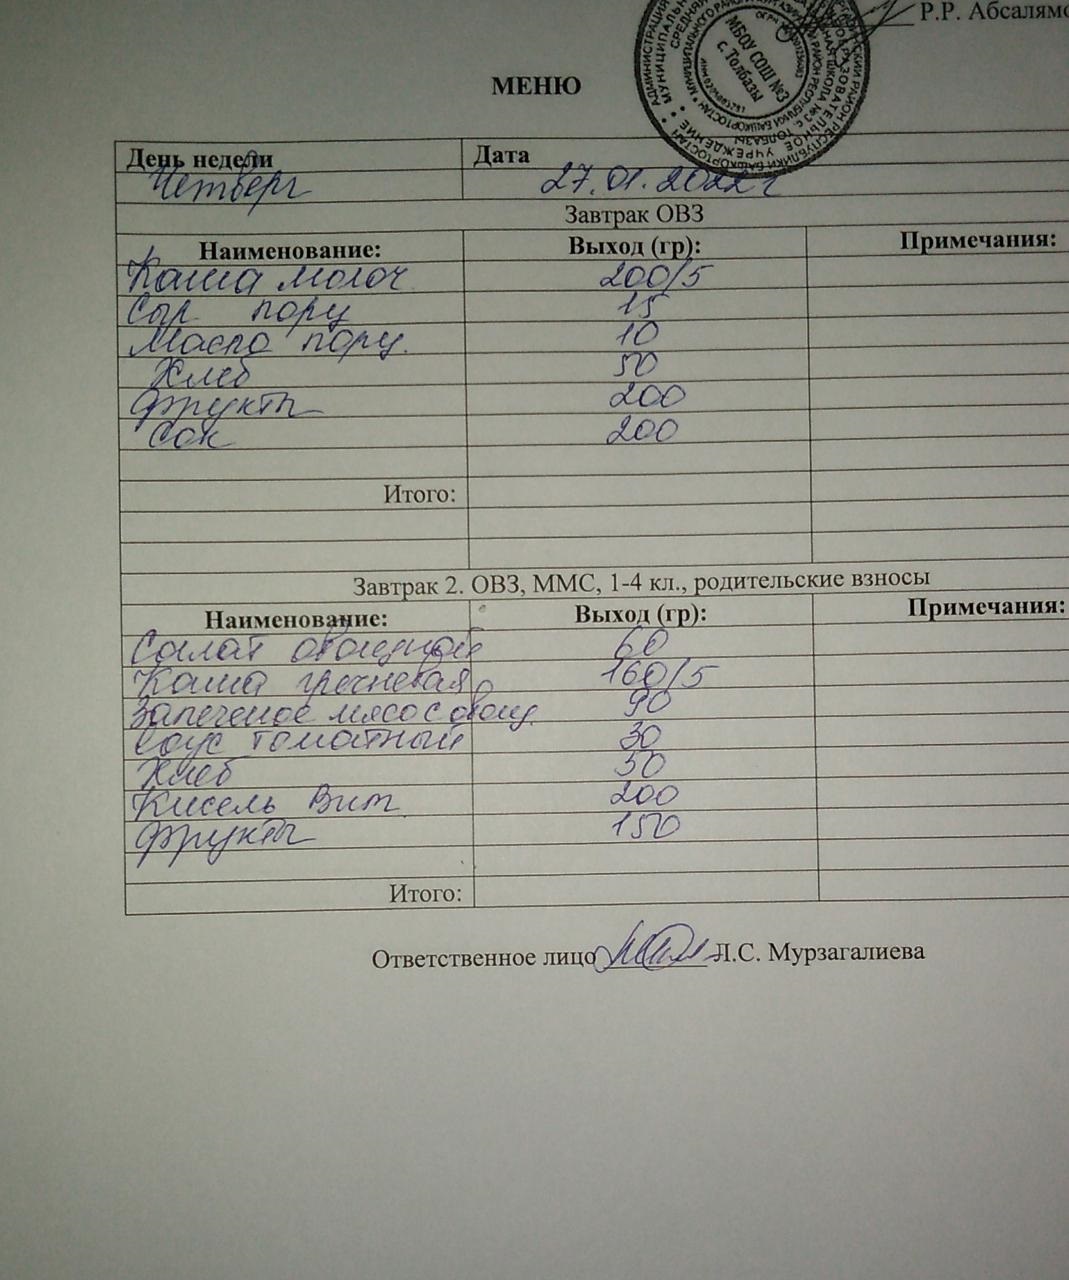 Р.Р. Абсалямо
МБОУ СОШ №3
с. Толбазы
МЕНЮ
День недели Дата
Четверг 27.01.2022 г
Завтрак ОВЗ
Наименование: Выход (гр): Примечания:
Каша молоч 200/5
Сыр пору 15
Масло пору. 10
Хлеб 50
Фрукты 200
Сок 200
Итого:
Завтрак 2. ОВЗ, ММС, 1-4 кл., родительские взносы
Наименование: Выход (гр): Примечания:
Салат овощной 60
Каша гречневая 160/5
Запеченое мясо с овощ. 90
Соус томатный 30
Хлеб 50
Кисель Вит 200
Фрукты 150
Итого:
Ответственное лицо Л.С. Мурзагалиева